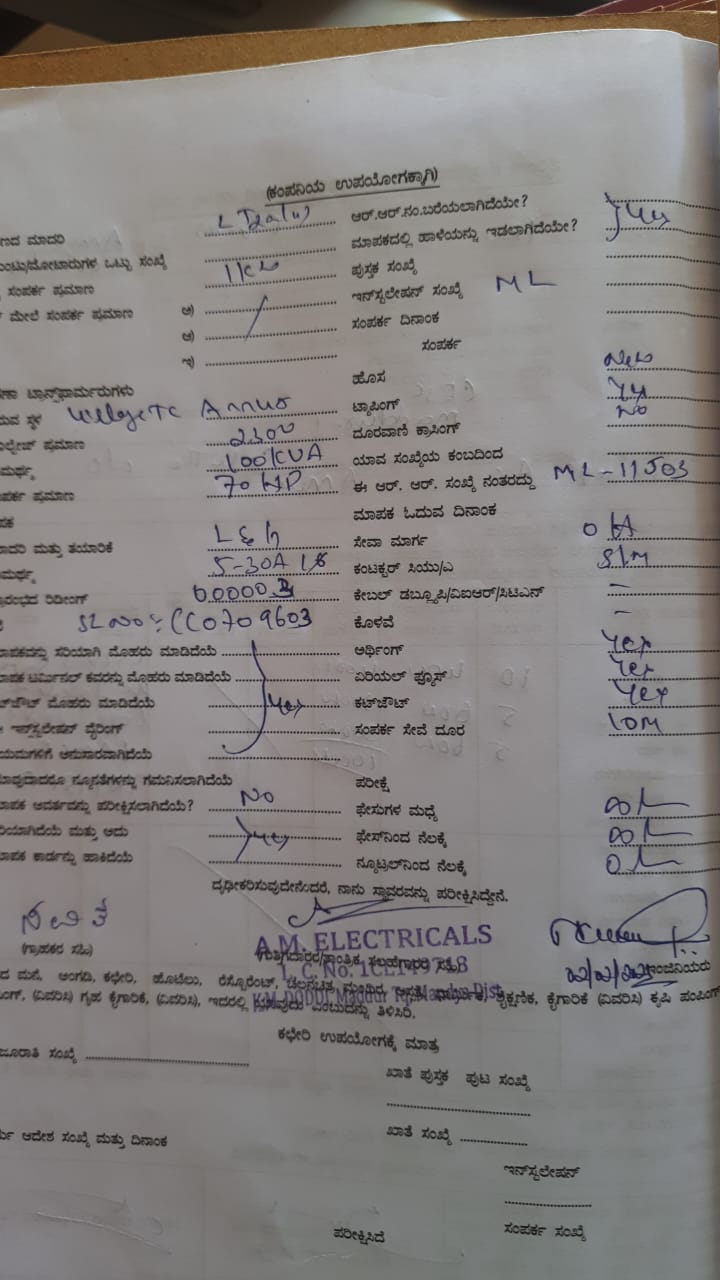 (ಕಂಪನಿಯ ಉಪಯೋಗಕ್ಕಾಗಿ)
ಣದ ಮಾದರಿ ಆರ್.ಆರ್.ನಂ.ಬರೆಯಲಾಗಿದೆಯೇ?
ಮಾಪಕದಲ್ಲಿ ಹಾಳೆಯನ್ನು ಇಡಲಾಗಿದೆಯೇ?
ಯಂಟು/ಮೋಟಾರುಗಳ ಒಟ್ಟು ಸಂಖ್ಯೆ 1KW ಪುಸ್ತಕ ಸಂಖ್ಯೆ
ಸಂಪರ್ಕ ಪ್ರಮಾಣ ಇನ್‌ಸ್ಟಲೇಷನ್ ಸಂಖ್ಯೆ ML
ಮೇಲೆ ಸಂಪರ್ಕ ಪ್ರಮಾಣ ಅ) ಸಂಪರ್ಕ ದಿನಾಂಕ
ಆ) ಸಂಪರ್ಕ
ಇ)
ಹೊಸ New
ಟ್ರಾನ್ಸ್‌ಫಾರ್ಮರುಗಳು ಟ್ಯಾಪಿಂಗ್ Yes
ಸ್ಥಳ ದೂರವಾಣಿ ಕ್ರಾಸಿಂಗ್ No
ಪ್ರಮಾಣ 2300 ಯಾವ ಸಂಖ್ಯೆಯ ಕಂಬದಿಂದ
100KVA
ಪರ್ಕ ಪ್ರಮಾಣ 70 HP ಈ ಆರ್. ಆರ್. ಸಂಖ್ಯೆ ನಂತರದ್ದು ML-11503
ಮಾಪಕ ಓದುವ ದಿನಾಂಕ
ಾದರಿ ಮತ್ತು ತಯಾರಿಕೆ L&G ಸೇವಾ ಮಾರ್ಗ OH
5-30A ಕಂಟಕ್ಟರ್ ಸಿಯು/ಎ
ರಂಭದ ರಿಡಿಂಗ್ 00000.3 ಕೇಬಲ್ ಡಬ್ಲ್ಯೂಪಿ/ವಿಐಆರ್/ಸಿಟಿಎಸ್ –
SL NO: CC0709603 ಕೊಳವೆ –
ಾಪಕವನ್ನು ಸರಿಯಾಗಿ ಮೊಹರು ಮಾಡಿದೆಯೆ ಅರ್ಥಿಂಗ್ Yes
ಾಪಕ ಟರ್ಮಿನಲ್ ಕವರನ್ನು ಮೊಹರು ಮಾಡಿದೆಯೆ ಏರಿಯಲ್ ಫ್ಯೂಸ್ Yes
ಟ್‌ಜೌಟ್ ಮೊಹರು ಮಾಡಿದೆಯೆ Yes ಕಟ್‌ಜೌಟ್ Yes
ಇನ್‌ಸ್ಟಲೇಷನ್ ವೈರಿಂಗ್ ಸಂಪರ್ಕ ಸೇವೆ ದೂರ 10M
ಯಮಗಳಿಗೆ ಅನುಸಾರವಾಗಿದೆಯೆ
ಾವುದಾದರೂ ನ್ಯೂನತೆಗಳನ್ನು ಗಮನಿಸಲಾಗಿದೆಯೆ No ಪರೀಕ್ಷೆ
ಾಪಕ ಆವರ್ತವನ್ನು ಪರೀಕ್ಷಿಸಲಾಗಿದೆಯೆ? ಫೇಸುಗಳ ಮಧ್ಯೆ
ರಿಯಾಗಿದೆಯೆ ಮತ್ತು ಅದು Yes ಫೇಸ್‌ನಿಂದ ನೆಲಕ್ಕೆ
ಾಪಕ ಕಾರ್ಡನ್ನು ಹಾಕಿದೆಯೆ ನ್ಯೂಟ್ರಲ್‌ನಿಂದ ನೆಲಕ್ಕೆ
ದೃಢೀಕರಿಸುವುದೇನೆಂದರೆ, ನಾನು ಸ್ಥಾವರವನ್ನು ಪರೀಕ್ಷಿಸಿದ್ದೇನೆ.
ಸವಿತ
A.M. ELECTRICALS
(ಗ್ರಾಹಕರ ಸಹಿ) ಗುತ್ತಿಗೆದಾರರ/ತಾಂತ್ರಿಕ ಸಲಹೆಗಾರರ ಸಹಿ ಇಂಜಿನಿಯರು
ದ ಮನೆ, ಅಂಗಡಿ, ಕಛೇರಿ, ಹೊಟೇಲು, ರೆಸ್ಟೋರೆಂಟ್, ಚಲನಚಿತ್ರ ಮಂದಿರ,
K.M.DODDI, Maddur Tq, Mandya Dist.
ಶೈಕ್ಷಣಿಕ, ಕೈಗಾರಿಕೆ (ವಿವರಿಸಿ) ಕೃಷಿ ಪಂಪಿಂಗ್
ಂಗ್, (ವಿವರಿಸಿ) ಗೃಹ ಕೈಗಾರಿಕೆ, (ವಿವರಿಸಿ), ಇದರಲ್ಲಿ ಎಂಬುದನ್ನು ತಿಳಿಸಿರಿ.
ಕಛೇರಿ ಉಪಯೋಗಕ್ಕೆ ಮಾತ್ರ
ಜೂರಾತಿ ಸಂಖ್ಯೆ ಖಾತೆ ಪುಸ್ತಕ ಪುಟ ಸಂಖ್ಯೆ
ಆದೇಶ ಸಂಖ್ಯೆ ಮತ್ತು ದಿನಾಂಕ ಖಾತೆ ಸಂಖ್ಯೆ
ಇನ್‌ಸ್ಟಲೇಷನ್
ಪರೀಕ್ಷಿಸಿದೆ ಸಂಪರ್ಕ ಸಂಖ್ಯೆ